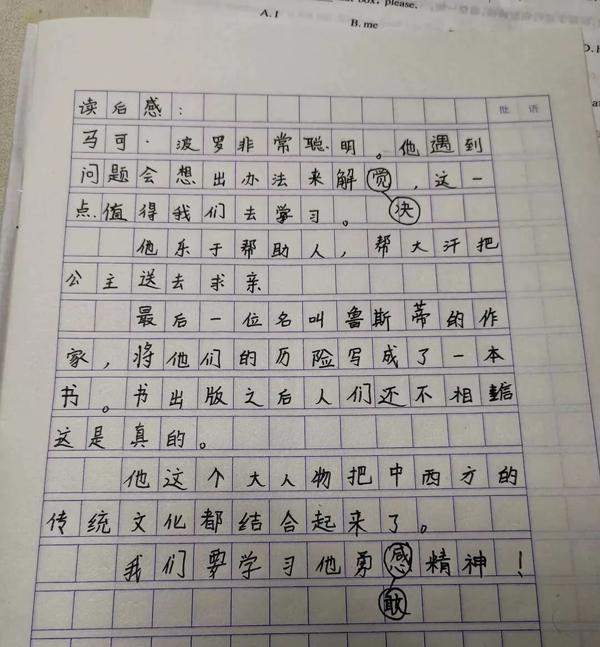 box, please.
A. I
B. me
读后感：
批语
马可·波罗非常聪明。他遇到
问题会想出办法来解觉，这一
决
点值得我们去学习。
他乐于帮助人，帮大汗把
公主送去求亲
最后一位名叫鲁斯蒂的作
家，将他们的历险写成了一本
书。书出版之后人们还不相信
这是真的。
他这个大人物把中西方的
传统文化都结合起来了。
我们要学习他勇感精神！
敢